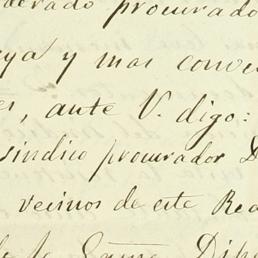 procurado
ya y mas conve
es, ante V. digo:
sindico procurador D
vecinos de este Rea